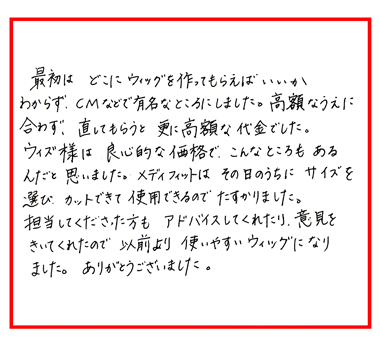 最初は どこに ウィッグを作ってもらえば いいか
わからず、CMなどで有名なところにしました。高額なうえに
合わず、直してもらうと 更に高額な代金でした。
ウィズ様は 良心的な価格で、こんなところも ある
んだと 思いました。メディフィットは その日のうちに サイズを
選び カットできて 使用できるので たすかりました。
担当してくださった方も アドバイスしてくれたり、意見を
きいてくれたので 以前より 使いやすい ウィッグに なり
ました。 ありがとうございました。